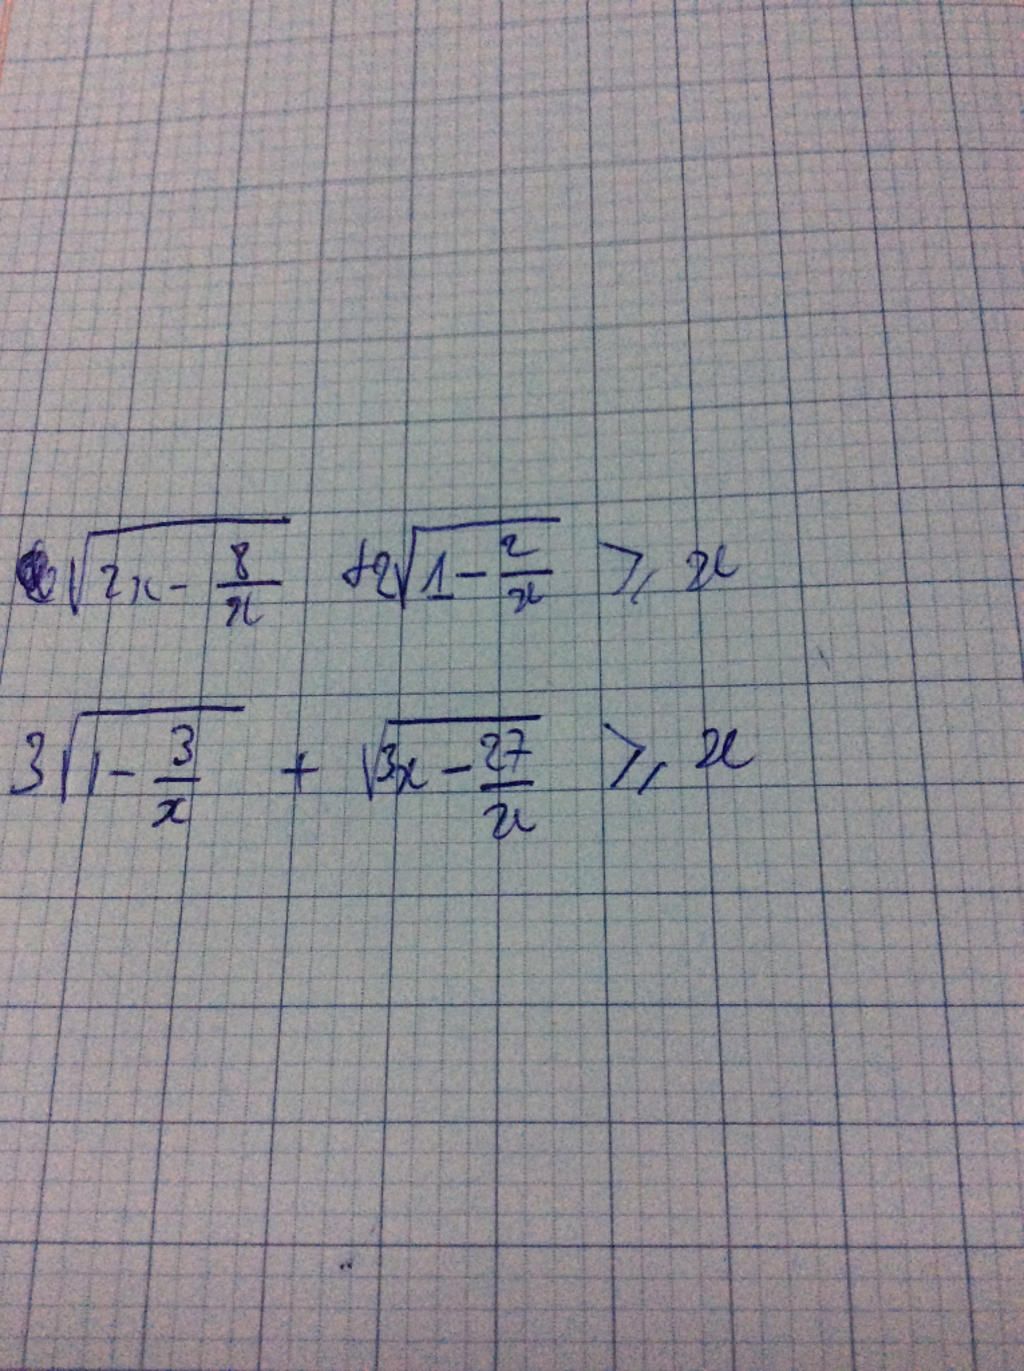 √(2x - 8/x) + 2√(1 - 2/x) ⩾ x
3√(1 - 3/x) + √(3x - 27/x) ⩾ x